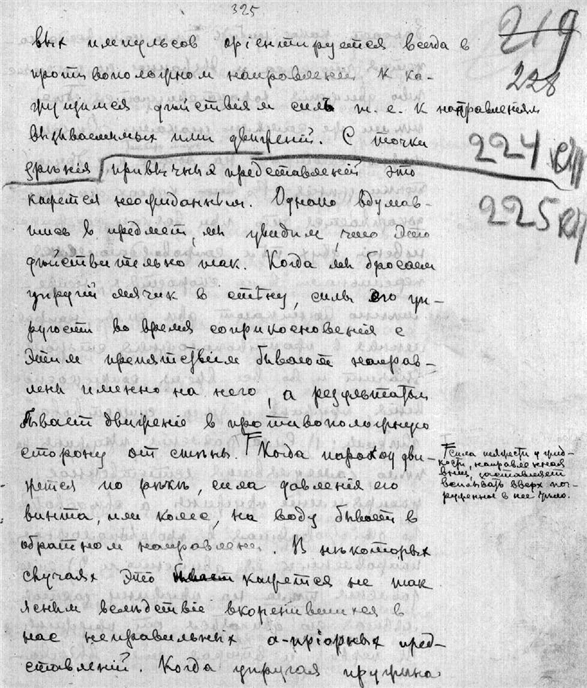 325
219
228
224
225
выхъ импульсов орiентируется всегда в
противоположном направленiи к ка-
жущимся дѣйствiям силъ т. е. к направленiям
вызываемых ими движенiй. С точки
зрѣнiя привычныя представленiй это
кажется неожиданным. Однако вдумав-
шись в предмет, мы увидим, что это
дѣйствительно так. Когда мы бросаем
упругiй мячик в стѣну, силы его уп-
ругости во время соприкосновенiя с
этим препятствiем бывают направ-
лены именно на него, а результатом
бывает движенiе в противоположную
сторону от стѣны. Когда пароход дви-
жется по рѣкѣ, сила давленiя его
винта, или колес, на воду бывает в
обратном направленiи. В нѣкоторых
случаях это кажется не так
ясным вслѣдствiе вкоренившихся в
нас неправильных а-прiорных пред-
ставленiй. Когда упругая пружина
Сила тяжести у жид-
кости, направленная
вниз, заставляет
всплывать вверх по-
груженное в нее тѣло.